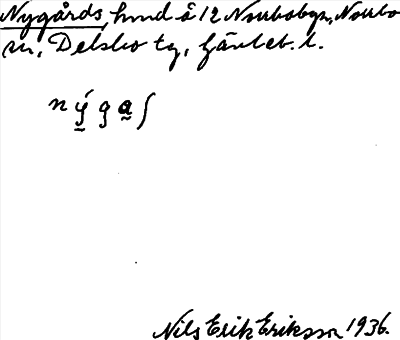 Nygårds, hmd å 12 Norrbobyn, Norrbo
sn, Delsbo tg, Gävleb. l.
nýgaʃ
Nils Erik Eriksson 1936.